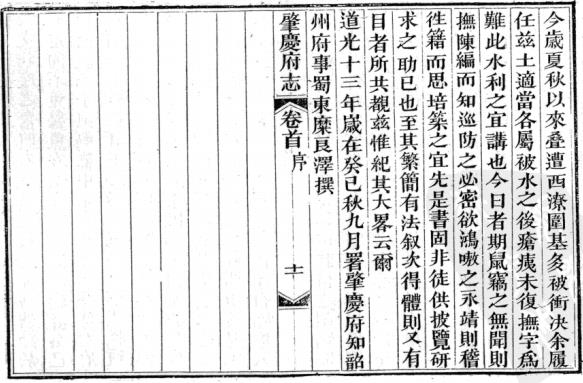 今歲夏秋以來疊遭西潦圍基多被衝決余履
任茲土適當各屬被水之後瘡痍未復撫字爲
難此水利之宜講也今日者期鼠竊之無聞則
撫陳編而知巡防之必密欲鴻嗷之永靖則稽
徃籍而思培築之宜先是書固非徒供披覽研
求之助已也至其繁簡有法叙次得體則又有
目者所共覩茲惟紀其大畧云爾
道光十三年歲在癸巳秋九月署肇慶府知韶
州府事蜀東糜良澤撰
肇慶府志
卷首
序
十一